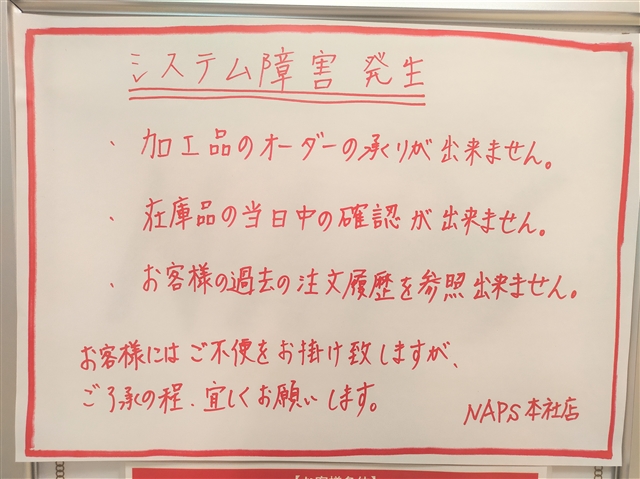 システム障害 発生
・ 加工品のオーダーの承りが出来ません。
・ 在庫品の当日中の確認が出来ません。
・ お客様の過去の注文履歴を参照出来ません。
お客様にはご不便をお掛け致しますが、
ご了承の程、宜しくお願いします。
NAPS本社店